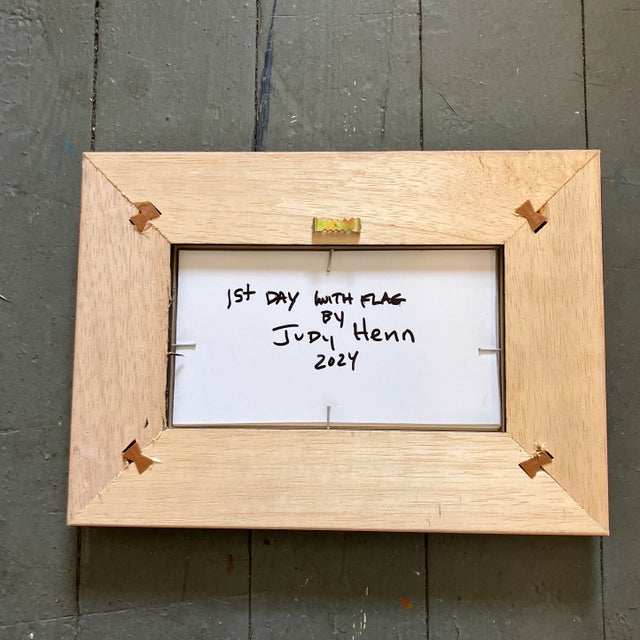 1st DAY WITH FLAG
BY
JUDy Henn
2024